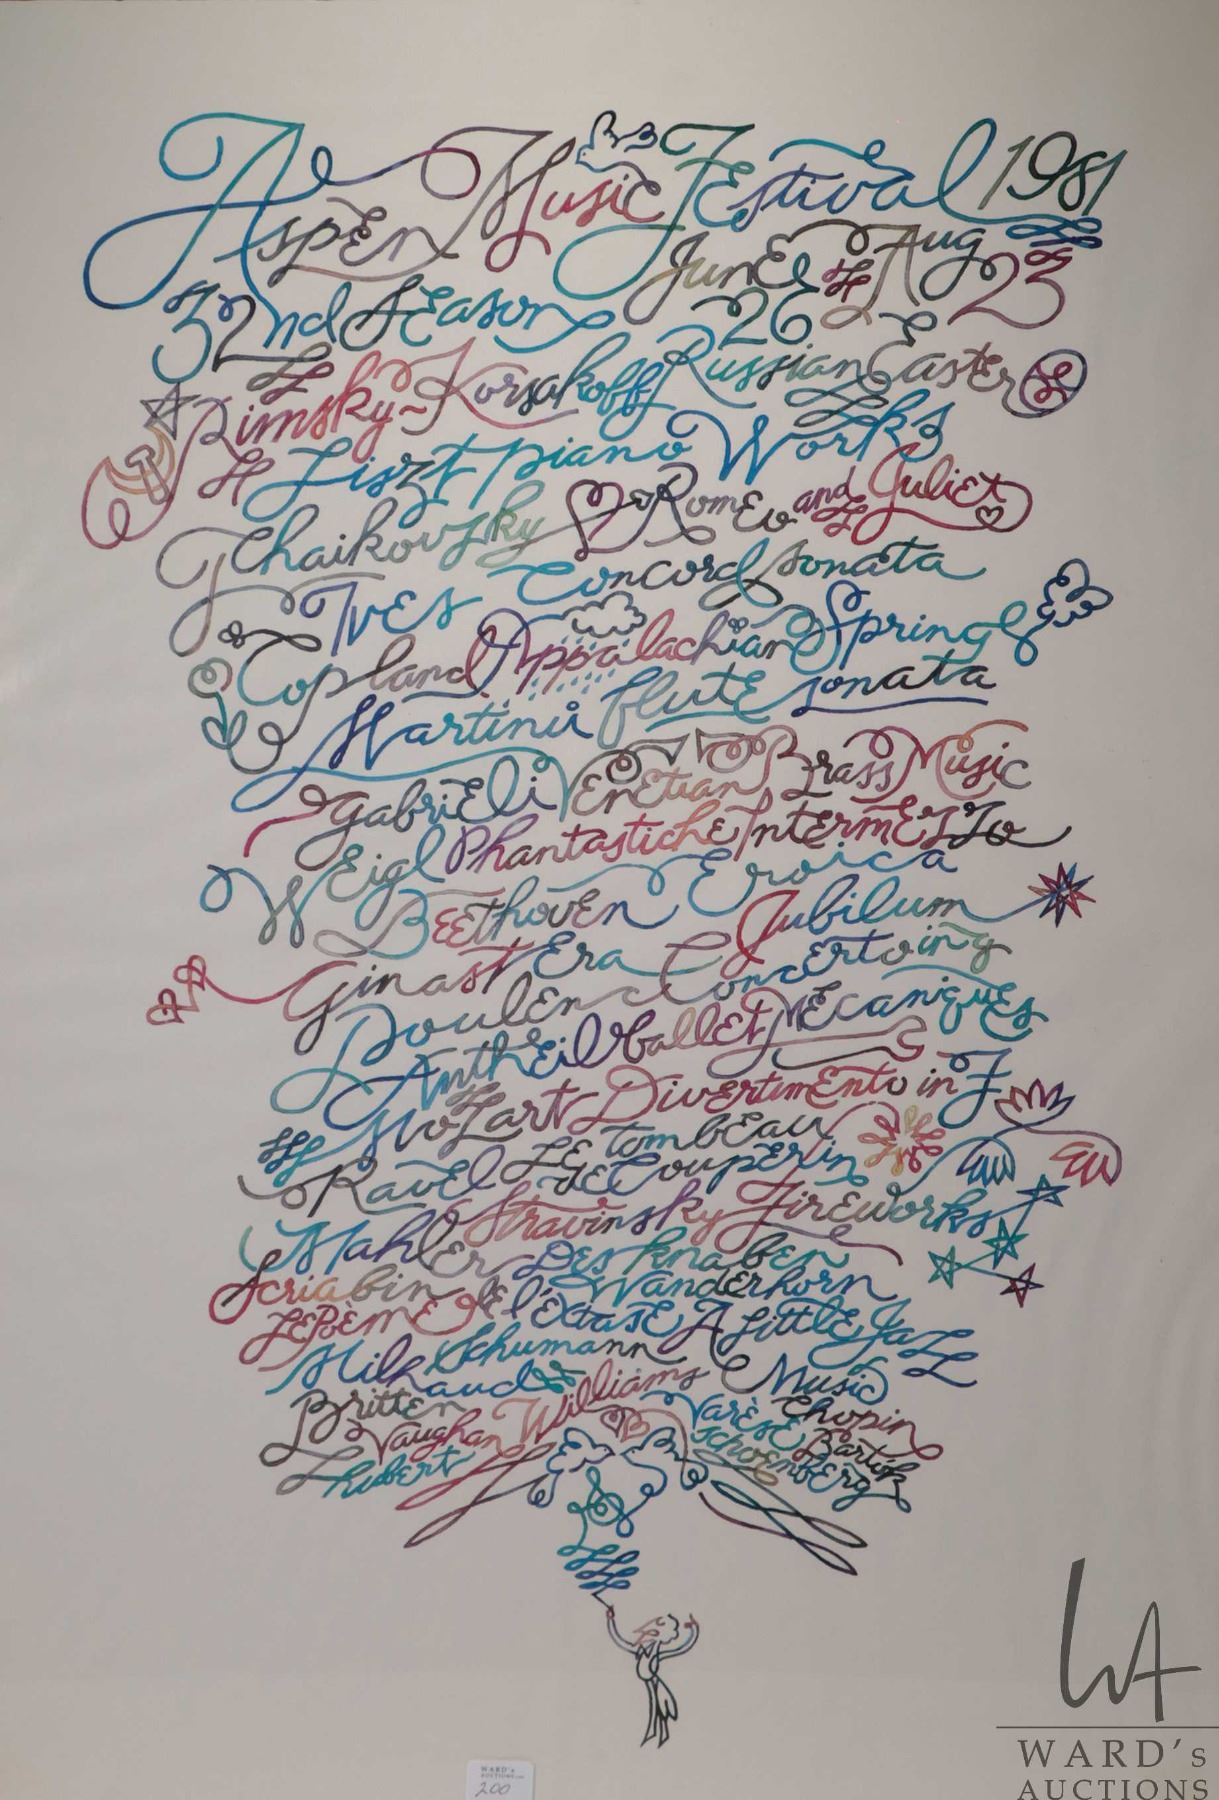 Aspen Music Festival 1981
32nd Season June 26 Aug 23
Rimsky-Korsakoff Russian Easter
Liszt piano Works
Tchaikovsky Romeo and Juliet
Ives Concord Sonata
Copland Appalachian Spring
Martinů flute sonata
Gabrieli Venetian Brass Music
Weigl Phantastiche Intermezzo
Beethoven Eroica
Ginastera Jubilum
Poulenc Concerto in g
Antheil Ballet Mecaniques
Mozart Divertimento in F
Ravel Le tombeau de Couperin
Stravinsky Fireworks
Mahler Des Knaben Wanderhorn
Scriabin Le Poème de l'éxtase
A Little Jazz
Schumann
Milhaud
Music
Britten
Vaughan Williams
Varèse
Chopin
Bartók
Schoenberg
Shubert
WARD's
AUCTIONS
200
WA
WARD's
AUCTIONS